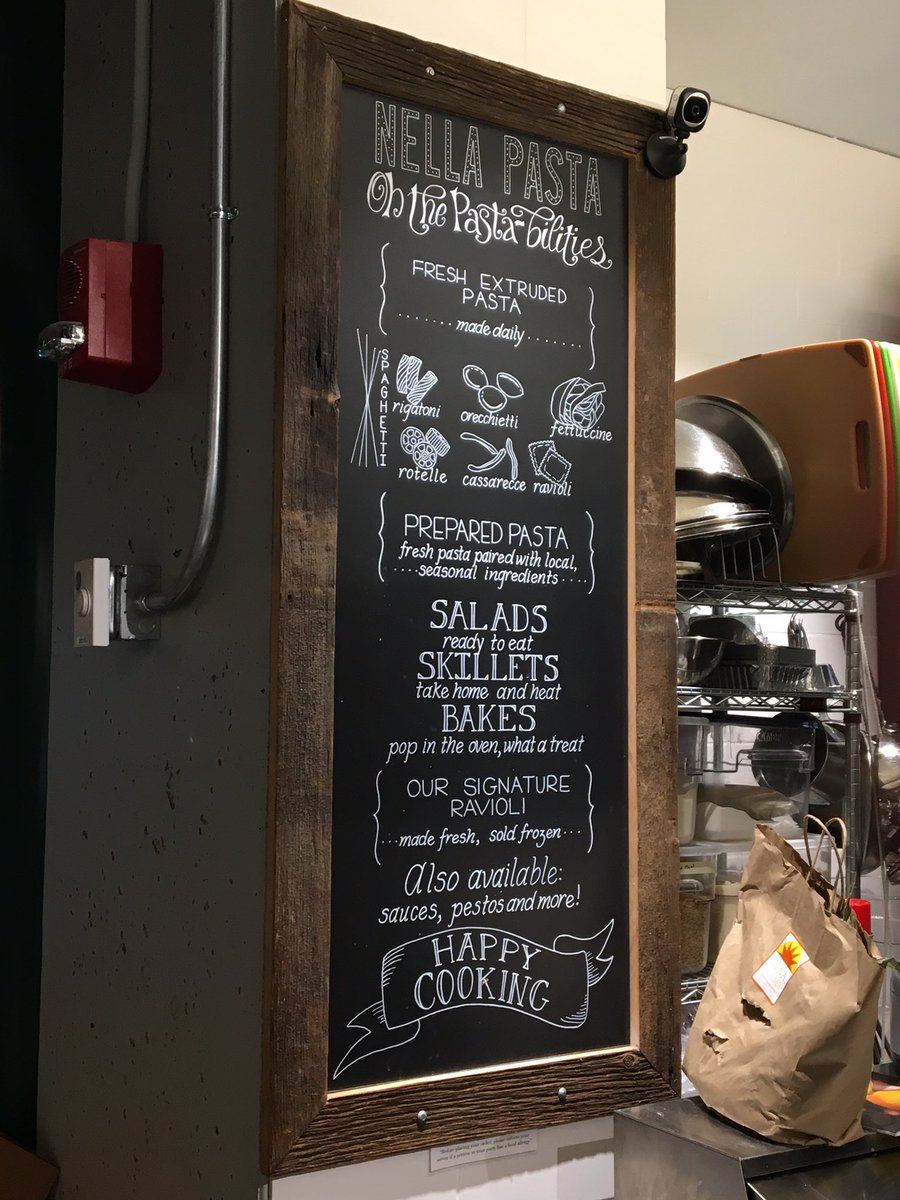 NELLA PASTA
Oh the Pasta-bilities
FRESH EXTRUDED
PASTA
.......made daily.......
SPAGHETTI
rigatoni
orecchietti
fettuccine
rotelle
cassarecce
ravioli
PREPARED PASTA
fresh pasta paired with local,
....seasonal ingredients....
SALADS
ready to eat
SKILLETS
take home and heat
BAKES
pop in the oven, what a treat
OUR SIGNATURE
RAVIOLI
...made fresh, sold frozen...
Also available:
sauces, pestos and more!
HAPPY
COOKING
"Before placing your order, please inform your
server if a person in your party has a food allergy"